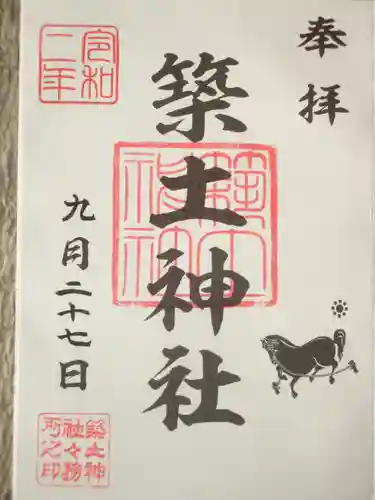 奉拝
築土神社
令和二年
九月二十七日
築土神社々務所之印